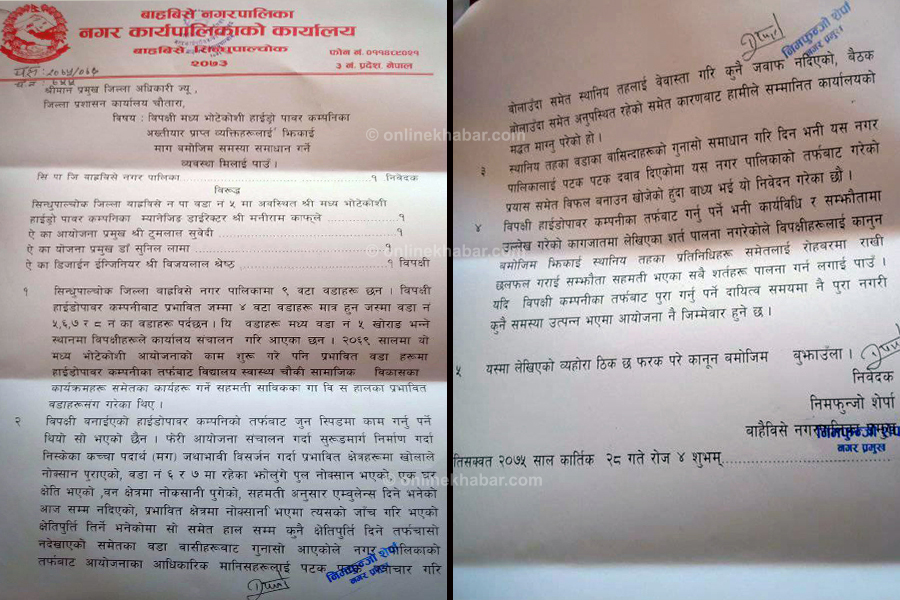 बाह्रबिसे नगरपालिका
नगर कार्यपालिकाको कार्यालय
बाह्रबिसे सिन्धुपाल्चोक
२०७३
फोन नं. ०११४८९०२१
३ नं. प्रदेश, नेपाल
श्रीमान प्रमुख जिल्ला अधिकारी ज्यू,
जिल्ला प्रशासन कार्यालय चौतारा,
विषय : विपक्षी मध्य भोटेकोशी हाईड्रो पावर कम्पनिका
अख्तीयार प्राप्त व्यक्तिहरूलाई झिकाई
माग बमोजिम समस्या समाधान गर्ने
व्यवस्था मिलाई पाउँ ।
सि पा जि बाह्रविसे नगर पालिका ........ १ निवेदक
विरूद्ध
सिन्धुपाल्चोक जिल्ला बाह्रविसे न पा वडा नं ५ मा अवस्थित श्री मध्य भोटेकोशी
हाईड्रो पावर कम्पनिका म्यानेजिड डाईरेक्टर श्री मनीराम काफ्ले ........ १
ऐ का आयोजना प्रमुख श्री टुमलाल सुवेदी ........ १
ऐ का योजना प्रमुख डा सुनिल लामा ........ १
ऐ का डिजाईन ईन्जिनियर श्री विजयलाल श्रेष्ठ ........ १ विपक्षी
१ सिन्धुपाल्चोक जिल्ला बाह्रविसे नगर पालिकामा ९ वटा वडाहरू छन । विपक्षी
हाईडोपावर कम्पनीबाट प्रभावित जम्मा ४ वटा वडाहरू मात्र हुन जस्मा वडा नं
५,६,७ र ८ न का वडाहरू पर्दछन । यि वडाहरू मध्य वडा नं ५ खोराङ भन्ने
स्थानमा विपक्षीहरूले कार्यालय संचालन गरि आएका छन । २०६९ सालमा यो
मध्य भोटेकोशी आयोजनाको काम शुरू गरे पनि प्रभावित वडा हरूमा
हाईडोपावर कम्पनीका तर्फबाट विद्यालय स्वास्थय चौकी सामाजिक विकासका
कार्यक्रमहरू समेतका कार्यहरू गर्ने सहमती साविकका गा वि स हालका प्रभावित
वडाहरूसंग गरेका थिए ।
२ विपक्षी बनाईएको हाईडोपावर कम्पनिको तर्फबाट जुन स्पिडमा काम गर्नु पर्ने
थियो सो भएको छैन । फेरी आयोजना संचालन गर्दा सुरूडमार्ग निर्माण गर्दा
निस्केका कच्चा पदार्थ (मग) जथाभावी विसर्जन गर्दा प्रभावित क्षेत्रहरूमा खोलाले
नोक्सान पुराएको, वडा नं ६ र ७ मा रहेका झोलुंगे पुल नोक्सान भएको, एक घर
क्षेति भएको ,वन क्षेत्रमा नोकसानी पुगेको, सहमती अनुसार एम्वुलेन्स दिने भनेको
आज सम्म नदिएको, प्रभावित क्षेत्रमा नोक्सानी भएमा त्यसको जाँच गरि भएको
क्षेतिपुर्ति तिर्ने भनेकोमा सो समेत हाल सम्म कुनै क्षेतिपुर्ति दिने तर्फचासो
नदेखाएको समेतका वडा बासीहरूबाट गुनासो आएकोले नगर पालिकाको
तर्फबाट आयोजनाका आधिकारिक मानिसहरूलाई पटक पटक गरि
निमफुन्जो शेर्पा
नगर प्रमुख
निमफुन्जो शेर्पा
नगर प्रमुख
बमोजिम स्थानिय तहलाई बेवास्ता गरि कुनै जवाफ नदिएको, बैठक
बोलाउँदा समेत अनुपस्थित रहेको समेत कारणबाट हामीले सम्मानित कार्यालयको
मद्धत माग्नु परेको हो ।
३ स्थानिय तहका वडाका बासिन्दाहरूको गुनासो समाधान गरि दिन भनी यस नगर
पालिकालाई पटक पटक दवाव दिएकोमा यस नगर पालिकाको तर्फबाट गरेको
प्रयास समेत विफल बनाउन खोजेको हुदा बाध्य भई यो निवेदन गरेका छौं ।
४ विपक्षी हाईडोपावर कम्पनीका तर्फबाट गर्नु पर्ने भनी कार्यविधि र सम्झौतामा
उल्लेख गरेको कागजातमा लेखिएका शर्त पालना नगरेकोले विपक्षीहरूलाई कानुन
बमोजिम झिकाई स्थानिय तहका प्रतिनिधिहरू समेतलाई रोहवरमा राखी
छलफल गराई सम्झौता सहमती भएका सबै शर्तहरू पालना गर्न लगाई पाउँ ।
यदि विपक्षी कम्पनीका तर्फबाट पुरा गर्नु पर्ने दायित्व समयमा नै पुरा नगरी
कुनै समस्या उत्पन्न भएमा आयोजना नै जिम्मेवार हुने छ ।
५ यस्मा लेखिएको व्यहोरा ठिक छ फरक परे कानून बमोजिम बुझाउँला ।
निवेदक
निमफुन्जो शेर्पा
बाह्रैविसे नगरपालिका प्रमुख
निमफुन्जो शेर्पा
नगर प्रमुख
तिसम्वत २०७५ साल कार्तिक २८ गते रोज ४ शुभम्........
© onlinekhabar.com
© onlinekhabar.com
© onlinekhabar.com
© onlinekhabar.com